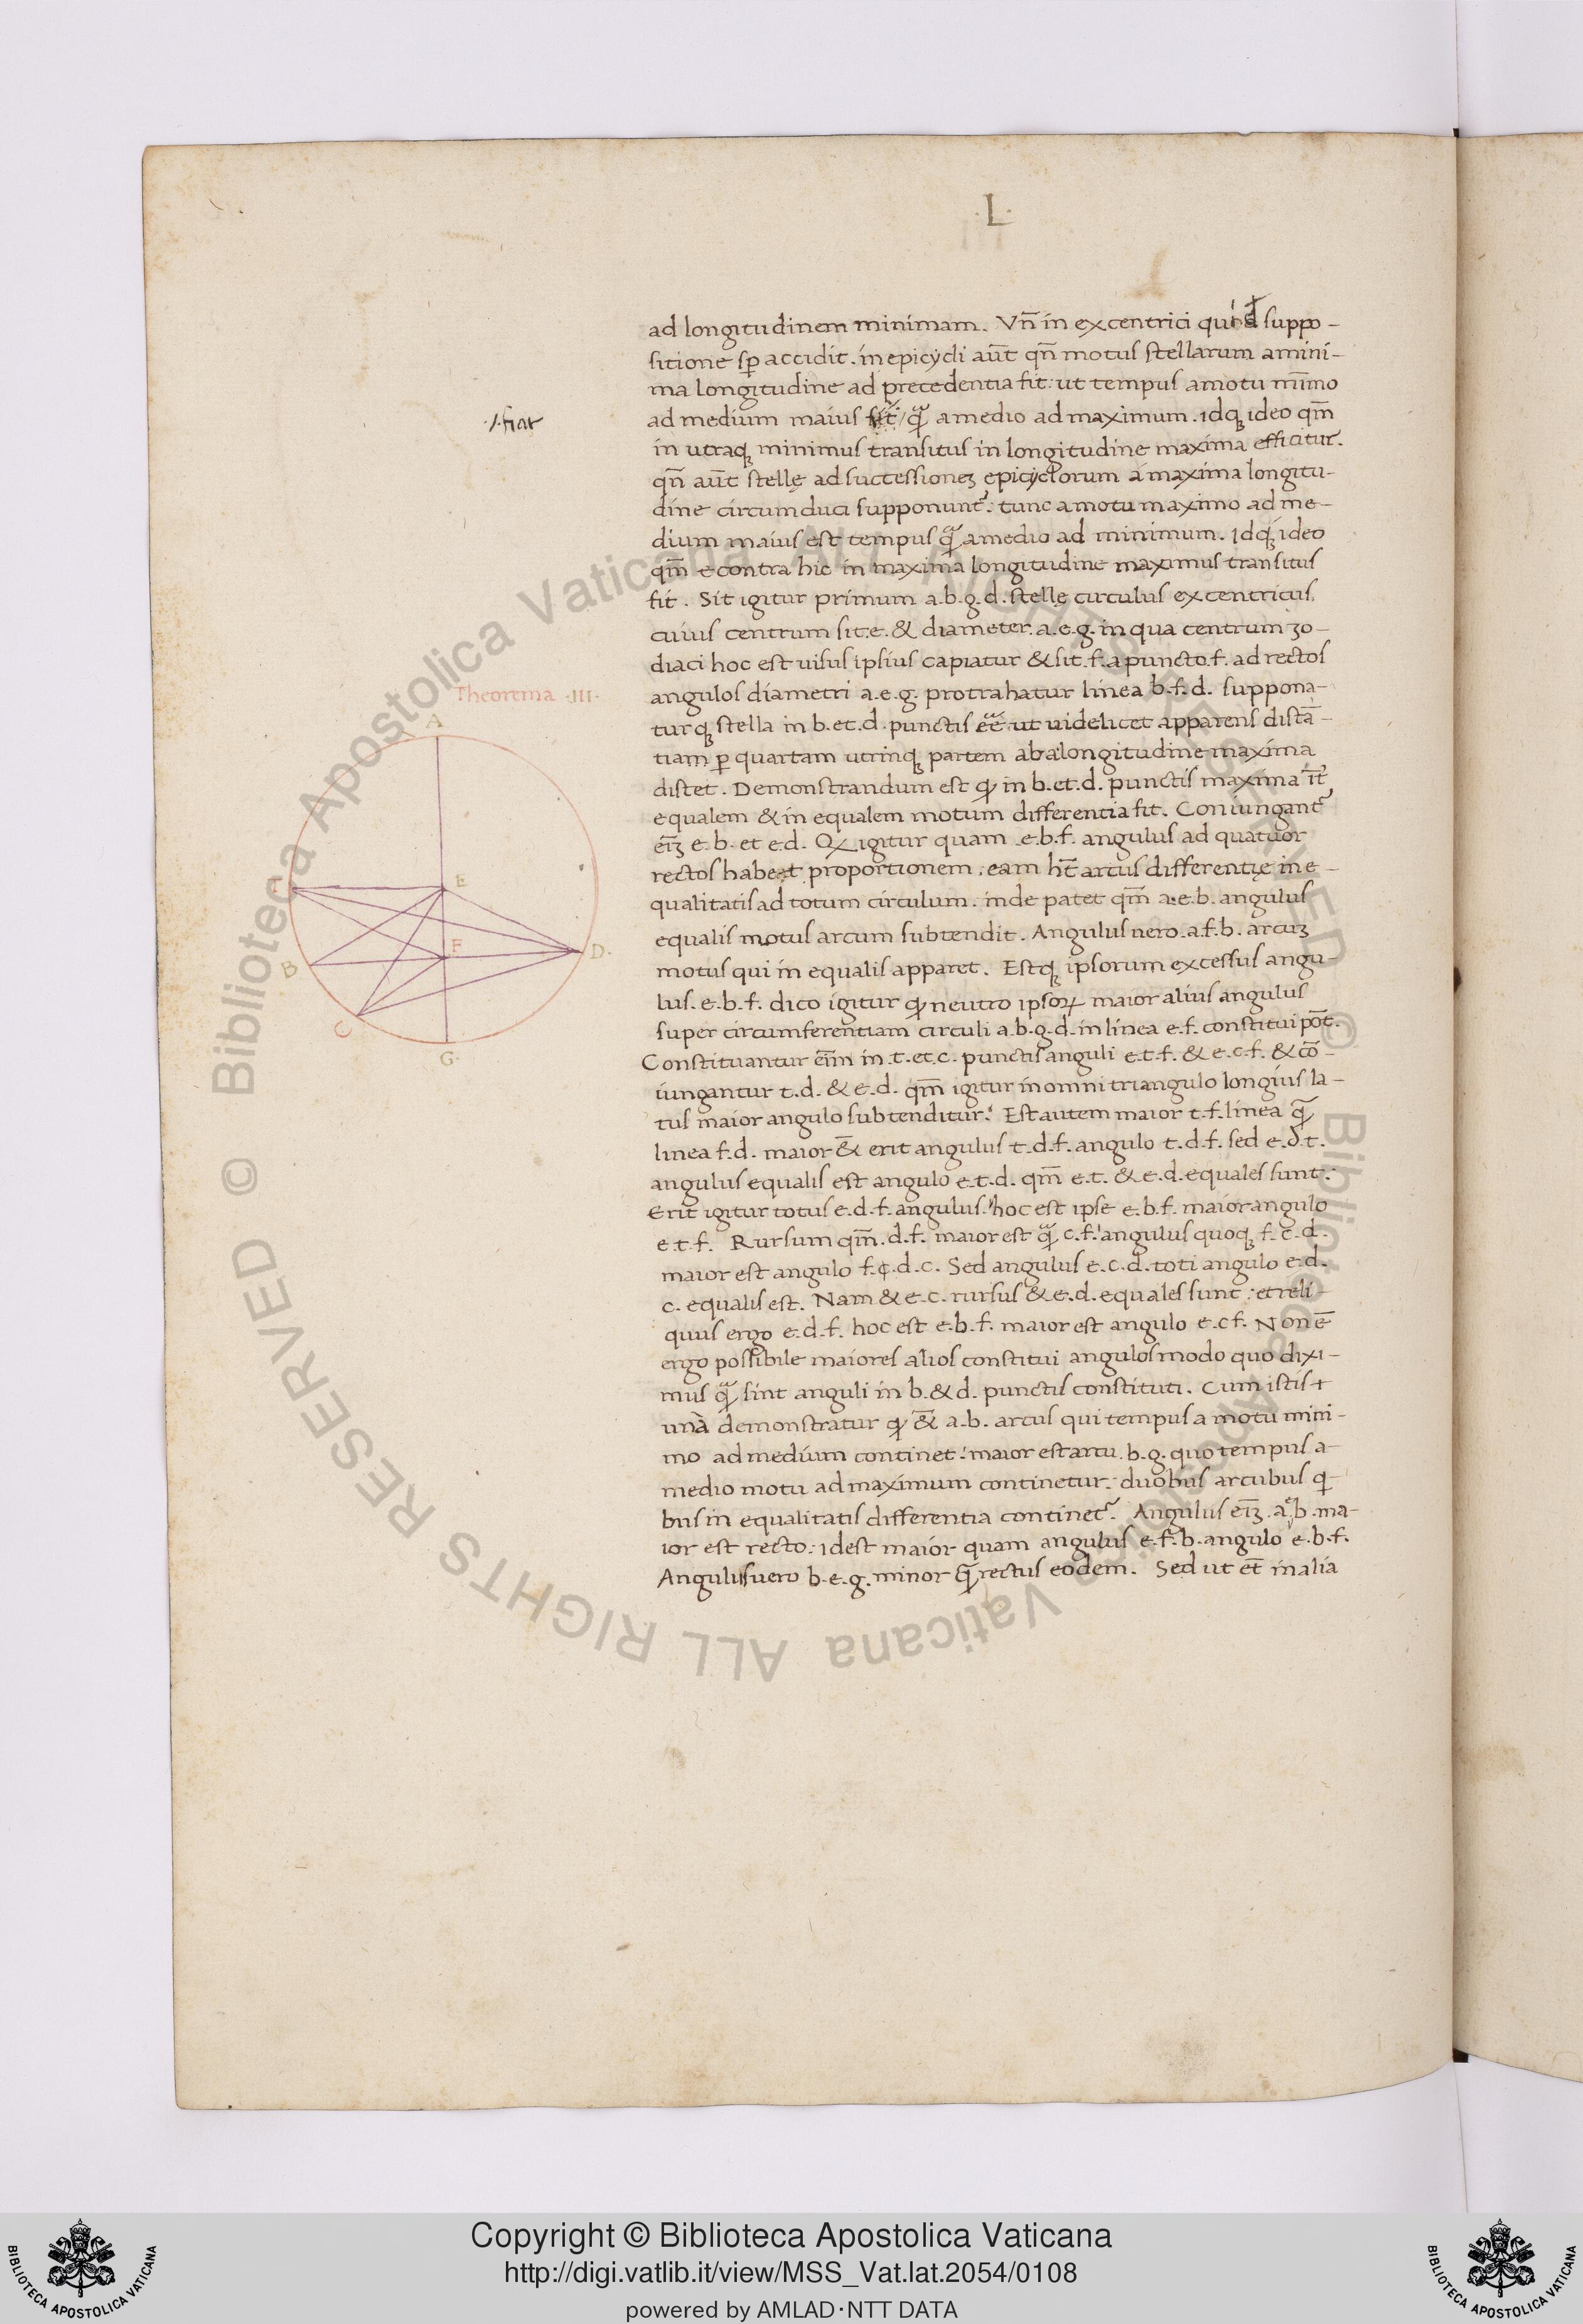 ·L·
ad longitudinem minimam. Vn̄ in excentrici quid suppo-
sitione sp̄ accidit. in epicycli aūt qn̄ motus stellarum a mini-
ma longitudine ad precedentia fit: ut tempus a motu mīmo
ad medium maius / qᷓ a medio ad maximum. idqꝫ ideo qm̄
·/. fiat
in utraqꝫ minimus transitus in longitudine maxima efficitur.
qn̄ aūt stellę ad successioneꝫ epicyclorum a maxima longitu-
dine circumduci supponunt᷑: tunc a motu maximo ad me-
dium maius est tempus qᷓ a medio ad minimum. idqꝫ ideo
qm̄ e contra hic in maxima longitudine maximus transitus
fit. Sit igitur primum a.b.g.d. stellę circulus excentricus
cuius centrum sit .e. & diameter .a.e.g. in qua centrum zo-
diaci hoc est uisus ipsius capiatur & sit .f. a puncto .f. ad rectos
Theorema ·III·
angulos diametri a.e.g. protrahatur linea b.f.d. suppona-
turqꝫ stella in b. et .d. punctis eē ut uidelicet apparens distā-
tiam ꝑ quartam utrinqꝫ partem ab a longitudine maxima
distet. Demonstrandum est ꝙ in b. et .d. punctis maxima īt᷑
equalem & in equalem motum differentia fit. Coniungant᷑
eīꝫ e.b. et e.d. Qꝫ igitur quam e.b.f. angulus ad quatuor
rectos habet proportionem: eam ht̄ arcus differentię ine-
qualitatis ad totum circulum. inde patet qm̄ a.e.b. angulus
equalis motus arcum subtendit. Angulus uero .a.f.b. arcuꝫ
motus qui in equalis apparet. Estqꝫ ipsorum excessus angu-
lus .e.b.f. dico igitur ꝙ neutro ipsoꝝ maior alius angulus
super circumferentiam circuli a.b.g.d. in linea e.f. constitui pōt.
Constituantur eīm in .t. et .c. punctis anguli e.t.f. & e.c.f. & cō-
iungantur t.d. & e.d. qm̄ igitur in omni triangulo longius la-
tus maior angulo subtenditur. Est autem maior t.f. linea qᷓ
linea f.d. maior & erit angulus t.d.f. angulo t.d.f. sed e.d.t.
angulus equalis est angulo e.t.d. qm̄ e.t. & e.d. equales sunt:
Erit igitur totus e.d.f. angulus. hoc est ipse e.b.f. maior angulo
e.t.f. Rursum qm̄ .d.f. maior est qᷓ c.f. angulus quoqꝫ f.c.d.
maior est angulo f.d.c. Sed angulus e.c.d. toti angulo e.d.
c. equalis est. Nam & e.c. rursus & e.d. equales sunt: et reli-
quus ergo e.d.f. hoc est e.b.f. maior est angulo e.c f. Non ē
ergo possibile maiores alios constitui angulos modo quo dixi-
mus qᷓ sint anguli in b. & d. punctis constituti. Cum istis
unà demonstratur ꝙ & a.b. arcus qui tempus a motu mini-
mo ad medium continet: maior est arcu .b.g. quo tempus a
medio motu ad maximum continetur: duobus arcubus q-
bus in equalitatis differentia continet᷑. Angulus eīꝫ .a b. ma-
ior est recto: idest maior quam angulus e.f.b. angulo e.b.f.
Angulus uero b.e.g. minor qᷓ rectus eodem. Sed ut et̄ in alia
A
E
F
B
D
C
G
© Biblioteca Apostolica Vaticana ALL RIGHTS RESERVED
© Biblioteca Apostolica Vaticana ALL RIGHTS RESERVED
Copyright © Biblioteca Apostolica Vaticana
http://digi.vatlib.it/view/MSS_Vat.lat.2054/0108
powered by AMLAD·NTT DATA
BIBLIOTECA APOSTOLICA VATICANA
BIBLIOTECA APOSTOLICA VATICANA